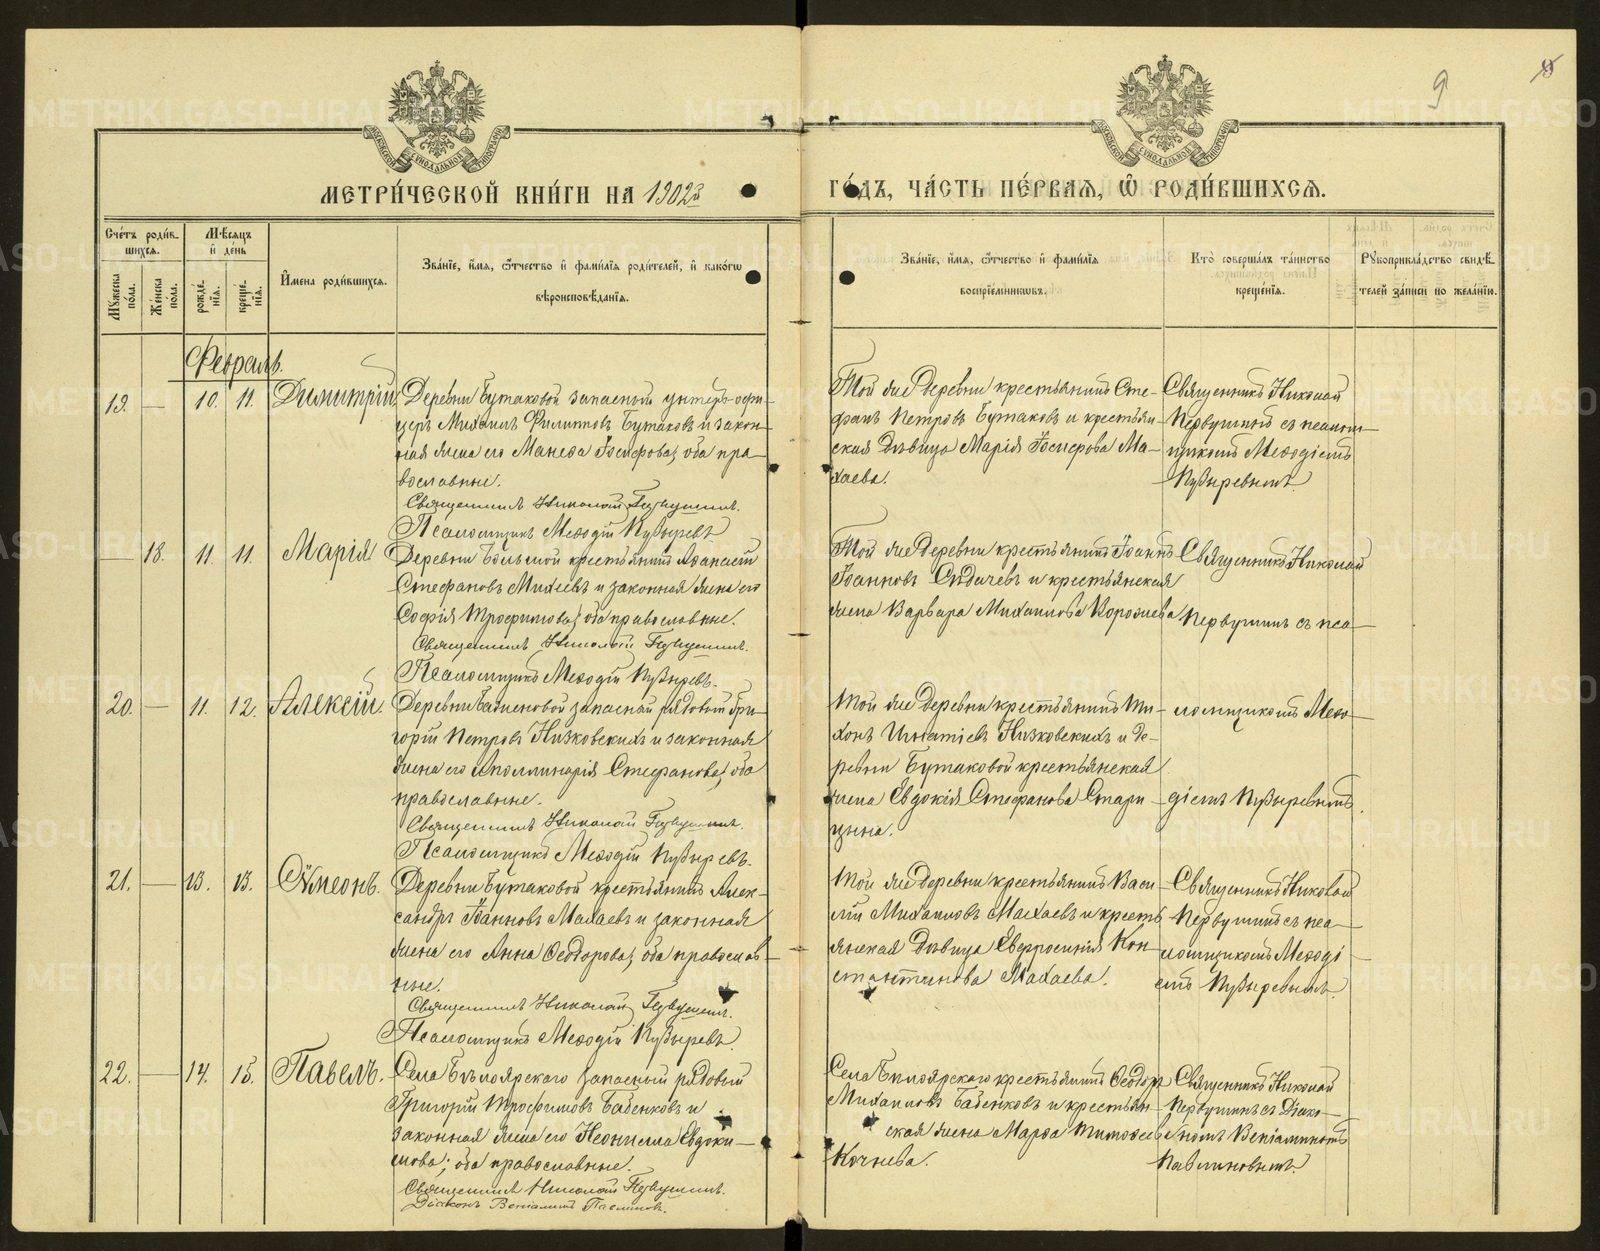 9
МОСКОВСКОЙ СѴНОДАЛЬНОЙ ТИПОГРАФІИ
МОСКОВСКОЙ СѴНОДАЛЬНОЙ ТИПОГРАФІИ
МЕТРИ́ЧЕСКОЙ КНИ́ГИ НА 1902й
ГО́ДЪ, ЧА́СТЬ ПЕ́РВАѦ, Ѡ҆ РОДИ́ВШИХСѦ.
Сче́тъ роди́в-
шихсѧ.
Мꙋ́жеска по́ла.
Же́нска по́ла.
Мѣ́сѧцъ и҆ де́нь
рожде́-
нїѧ.
креще́-
нїѧ.
И҆мена роди́вшихсѧ.
Зва́нїе, и҆́мѧ, ѻ҆́тчество и҆ фами́лїѧ роди́телей, и҆ како́гѡ
вѣроисповѣ́данїѧ.
Зва́нїе, и҆́мѧ, ѻ҆́тчество и҆ фами́лїѧ
воспрїе́мникѡвъ.
Кто̀ соверша́лъ та́инство
креще́нїѧ.
Рꙋкоприкла́дство свидѣ́-
телей за́писи по жела́нїю.
Февраль.
19. — 10. 11. Димитрій
Деревни Бутаковой запасный унтеръ-офи-
церъ Михаилъ Филипповъ Бутаковъ и закон-
ная жена его Манефа Іосифова; оба пра-
вославные.
Священникъ Николай Первушинъ.
Псаломщикъ Меѳодій Пузыревъ.
Той же деревни крестьянинъ Сте-
фанъ Петровъ Бутаковъ и крестьян-
ская дѣвица Марія Іосифова Ма-
хаева.
Священникъ Николай
Первушинъ съ псалом-
щикомъ Меѳодіемъ
Пузыревымъ.
— 18. 11. 11. Марія
Деревни Большой крестьянинъ Аѳанасій
Стефановъ Михѣевъ и законная жена его
Софія Трофимова; оба православные.
Священникъ Николай Первушинъ.
Псаломщикъ Меѳодій Пузыревъ.
Той же деревни крестьянинъ Іоаннъ
Іоанновъ Сѣдачевъ и крестьянская
жена Варвара Михаилова
Священникъ Николай
Первушинъ съ пса-
20. — 11. 12. Алексій.
Деревни запасный рядовый Гри-
горій Петровъ Низковскихъ и законная
жена его Аполлинарія Стефанова; оба
православные.
Священникъ Николай Первушинъ.
Псаломщикъ Меѳодій Пузыревъ.
Той же деревни крестьянинъ Ти-
хонъ Игнатіевъ Низковскихъ и де-
ревни Бутаковой крестьянская
жена Евдокія Стефанова Стари-
цына.
ломщикомъ Меѳо-
діемъ Пузыревымъ.
21. — 13. 13. Сѵмеонъ.
Деревни Бутаковой крестьянинъ Алек-
сандръ Іоанновъ Махаевъ и законная
жена его Анна Ѳеодорова; оба православ-
ные.
Священникъ Николай Первушинъ.
Псаломщикъ Меѳодій Пузыревъ.
Той же деревни крестьянинъ Васи-
лій Михаиловъ Махаевъ и кресть-
янская дѣвица Евфросинія Кон-
стантинова Махаева.
Священникъ Николай
Первушинъ съ пса-
ломщикомъ Меѳоді-
емъ Пузыревымъ.
22. — 14. 15. Павелъ.
Села Бѣлоярскаго запасный рядовый
Григорій Трофимовъ Бабенковъ и
законная жена его Неонилла Евдоки-
мова; оба православные.
Священникъ Николай Первушинъ.
Діаконъ Веніаминъ Павлиновъ.
Села Бѣлоярскаго крестьянинъ Ѳеодоръ
Михаиловъ Бабенковъ и крестьян-
ская жена Марѳа Тимоѳеева
Кочнева.
Священникъ Николай
Первушинъ съ Діако-
номъ Веніаминомъ
Павлиновымъ.
METRIKI.GASO-URAL.RU